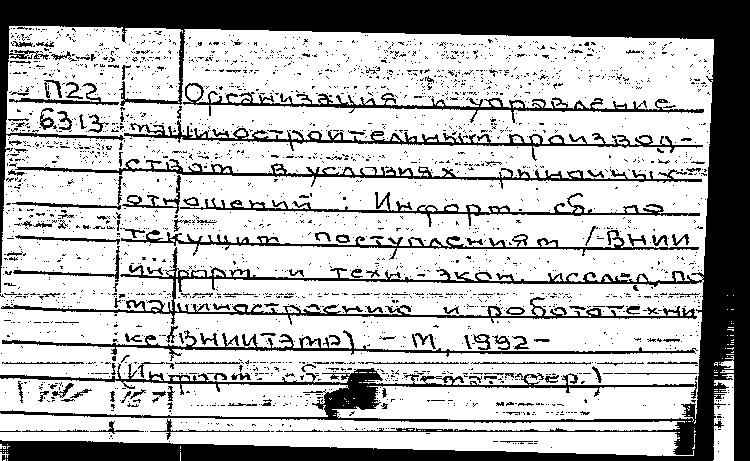 П22 Организация и управление
6313 машиностроительным производ-
ством в условиях рыночных
отношений : Информ. сб. по
текущим поступлениям / ВНИИ
информ. и техн.-экон. исслед. по
машиностроению и робототехни-
ке (ВНИИТЭМР). - М., 1992 -
(Информ. сб. темат. сер.)